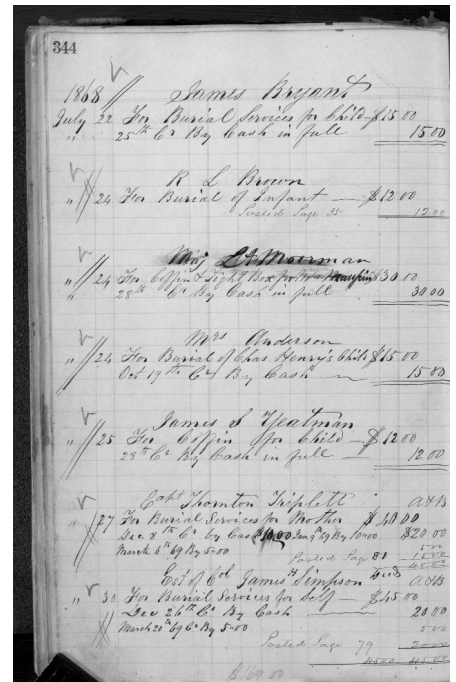 344
1868 // James Bryant
July 22 For Burial Services for Child $15.00
" 25th Cr By Cash in full 15.00
R L Brown
" 24 For Burial of Infant — $12.00
Posted Page 35 12.00
Maj Moorman
" 24 For Coffin & Tight Box $30.00
" 28th Cr By Cash in full 30.00
Mrs Anderson
" 24 For Burial of Chas Henry's Child $15.00
Oct 19th Cr By Cash — 15.00
James S Yeatman
" 25 For Coffin for Child — $12.00
28th Cr By Cash in full — 12.00
Capt Thornton Triplett A&B
" 27 For Burial Services for Mother $40.00
Dec 8th Cr by Cash $10.00 Jany 9th 69 By 10.00 $20.00
March 5th 69 By 5.00 5.00
Posted Page 81 15.00
40.00
Est of Col James H Simpson Decd A&B
" 30 For Burial Services for Self — $45.00
Dec 26th Cr By Cash 20.00
March 20th 69 Cr By 5.00 5.00
Posted Page 79 20.00
45.00 45.00
$169.00